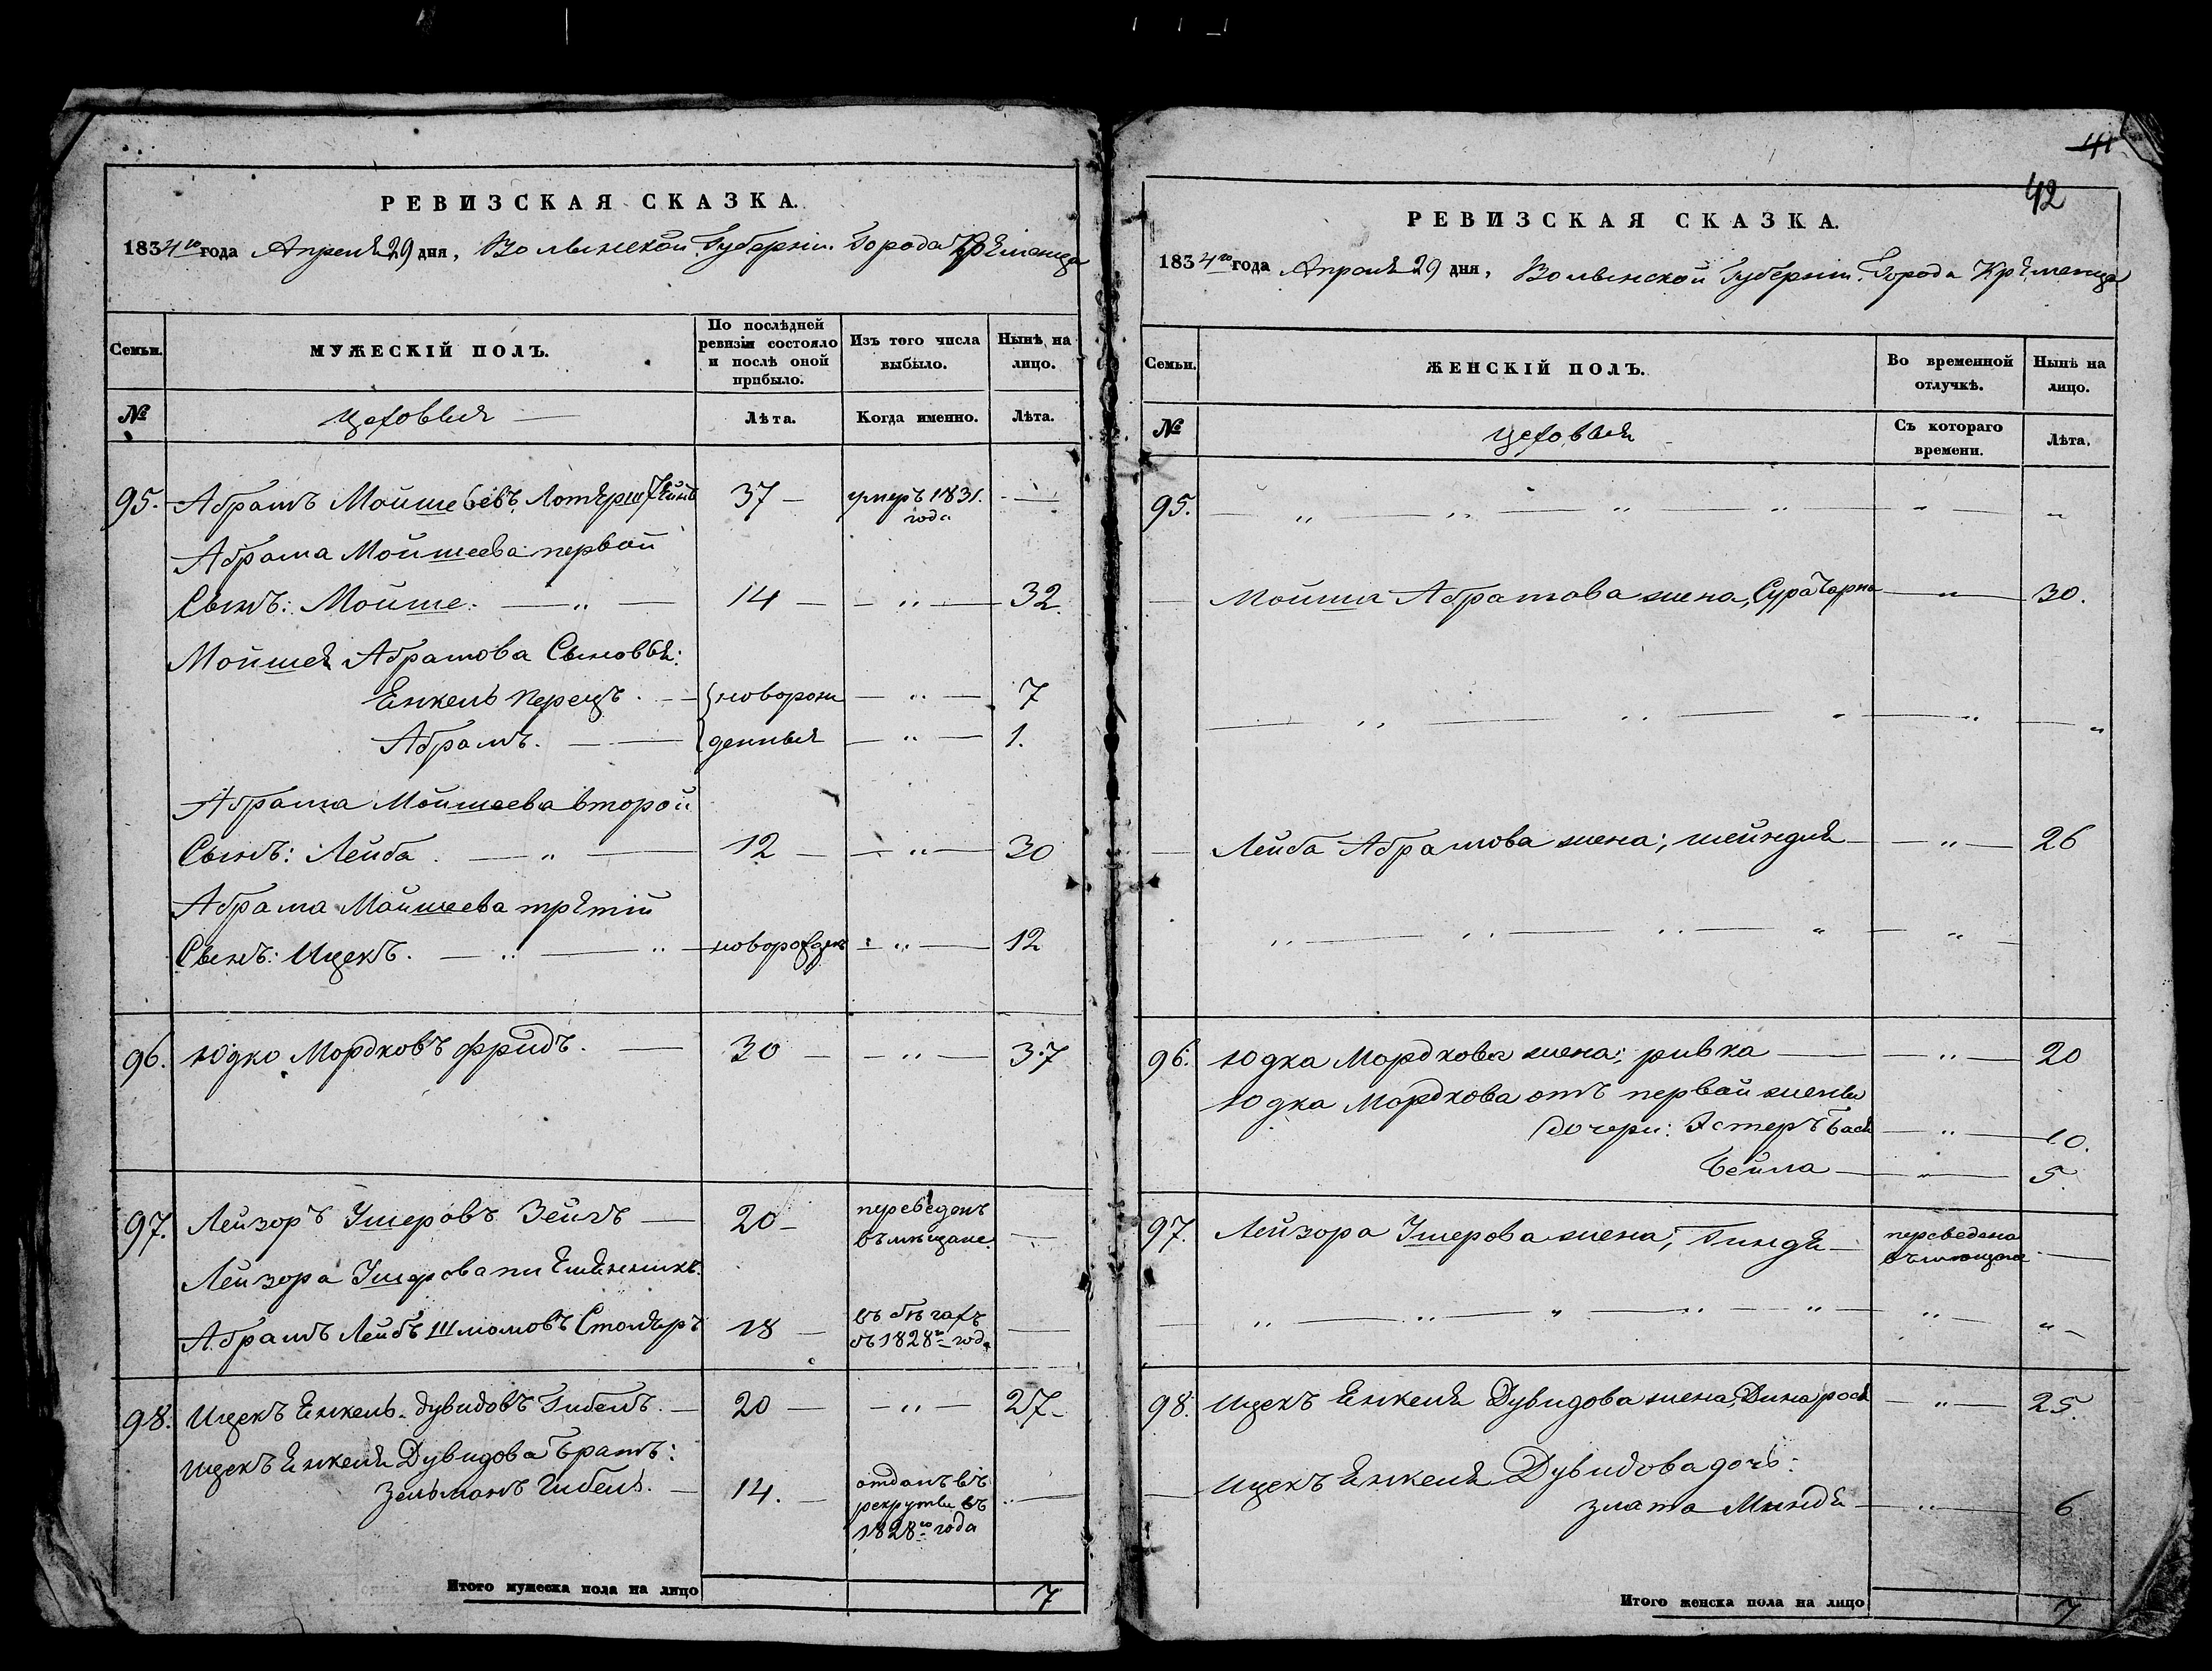 РЕВИЗСКАЯ СКАЗКА.
1834го года Апреля 29 дня, Волынской Губерніи Города Кременца
Семьи. МУЖЕСКІЙ ПОЛЪ. По послѣдней ревизіи состояло и послѣ оной прибыло. Изъ того числа выбыло. Нынѣ на лицо.
№ цеховыя Лѣта. Когда именно. Лѣта.
95. Абрамъ Мойшеевъ 37 — умеръ 1831. —
года
Абрама Мойшеева первой
Сынъ: Мойше. — „ — 14 — „ — 32.
Мойшея Абрамова Сыновья:
Енкель Перецъ. — новорож — „ — 7
Абрамъ. — денныя — „ — 1.
Абрама Мойшеева второй
Сынъ: Лейба. — „ — 12 — „ — 30
Абрама Мойшеева третій
Сынъ: Ицекъ. — „ — новорожден — „ — 12
96. Юдко Мордковъ Фридъ. — 30 — „ — 37
97. Лейзоръ Ушеровъ Зейгъ — 20 — переведенъ —
въ мещане.
Лейзора Ушерова племянникъ.
Абрамъ Лейбъ Шломовъ Столяръ 18 — въ бѣгахъ —
съ 1828го года
98. Ицекъ Енкель Дувидовъ Гибель. — 20 — „ — 27 —
Ицекъ Енкеля Дувидова братъ:
Зельманъ Гибель. — 14. — отданъ въ —
рекруты въ
1828го года
Итого мужеска пола на лицо 7
41
42
РЕВИЗСКАЯ СКАЗКА.
1834го года Апреля 29 дня, Волынской Губерніи. Города Кременца
Семьи. ЖЕНСКІЙ ПОЛЪ. Во временной отлучкѣ. Нынѣ на лицо.
№ цеховыя Съ котораго времени. Лѣта.
95. — „ — „ — „ — „ — „ — „
— Мойша Абрамова жена, Сура Чарна — „ — 30.
— „ — „ — „ — „ — „
— Лейба Абрамова жена; шейндля — „ — 26
„ — „ — „ — „ — „ —
96. Юдка Мордкова жена; ривка — „ — 20
Юдка Мордкова отъ первой жены
дочери: Эстеръ бася — „ — 10.
бейла — „ — 5.
97. Лейзора Ушерова жена; Гинда — переведена —
въ мещане
— „ — „ — „ — „ — „ — „ —
98. Ицекъ Енкеля Дувидова жена, Дина рося — „ — 25.
— Ицекъ Енкеля Дувидова дочь:
злата Миндя — „ — 6
Итого женска пола на лицо 7